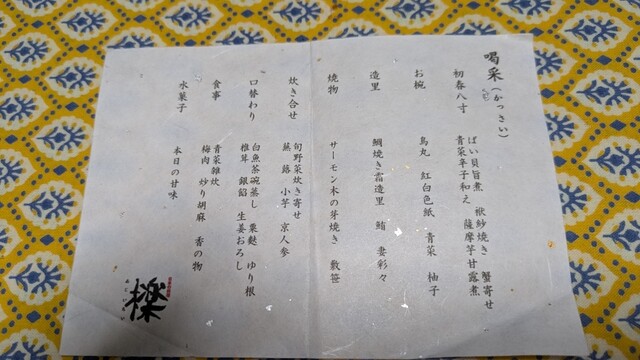 喝采（かっさい）
初春八寸
ばい貝旨煮　袱紗焼き　蟹寄せ
青菜辛子和え　薩摩芋甘露煮
お椀
鳥丸　紅白色紙　青菜　柚子
造里
鯛焼き霜造里　鮪　妻彩々
焼物
サーモン木の芽焼き　敷笹
炊き合せ
旬野菜炊き寄せ
蕪　蕗　小芋　京人参
口替わり
白魚茶碗蒸し　粟麩　ゆり根
椎茸　銀餡　生姜おろし
食事
青菜雑炊
梅肉　炒り胡麻　香の物
水菓子
本日の甘味
櫟